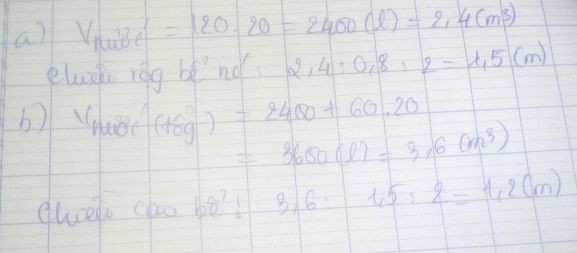 a) Vnước = 120.20 = 2400 (l) = 2,4 (m³)
chiều rộg bể nc: 2,4 : 0,8 : 2 = 1,5 (m)
b) Vnước (tổg) = 2400 + 60.20
= 3600 (l) = 3,6 (m³)
chiều cao bể: 3,6 : 1,5 : 2 = 1,2 (m)